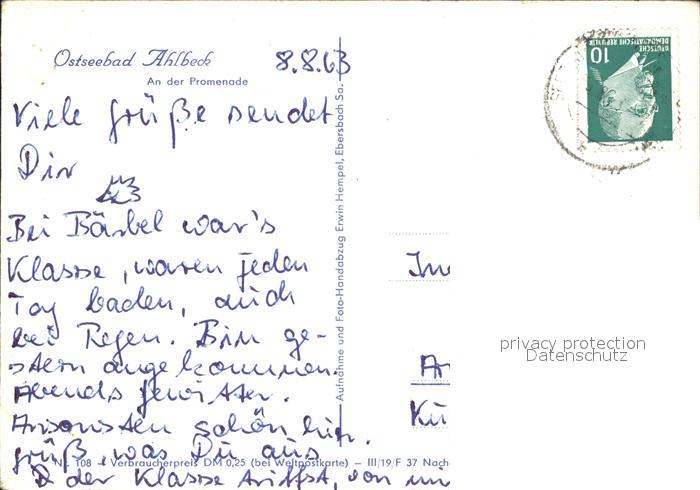 Ostseebad Ahlbeck
An der Promenade
8.8.63
Viele Grüße sendet
Dir
Bei Bärbel war's
Klasse, waren jeden
Tag baden, auch
bei Regen. Bin ge-
stern angekommen.
Abends Gewitter.
Ansonsten schön hier.
grüß, was Du aus
der Klasse triffst, von
Nr. 108 – Verbraucherpreis DM 0,25 (bei Weltpostkarte) – III/19/F 37 Nach
Aufnahme und Foto-Handabzug Erwin Hempel, Ebersbach Sa.
DEUTSCHE
DEMOKRATISCHE REPUBLIK
10
privacy protection
Datenschutz